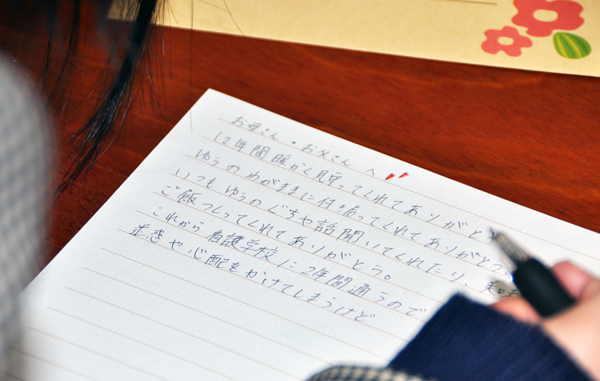 お母さん・お父さんへ
12年間暖かく見守ってくれてありがとう
ゆうのわがままに付き合ってくれてありがとう。
いつもゆうのぐちや話聞いてくれたり、
ご飯つくってくれてありがとう。
これから看護学校に2年間通うので
迷惑や心配をかけてしまうけど